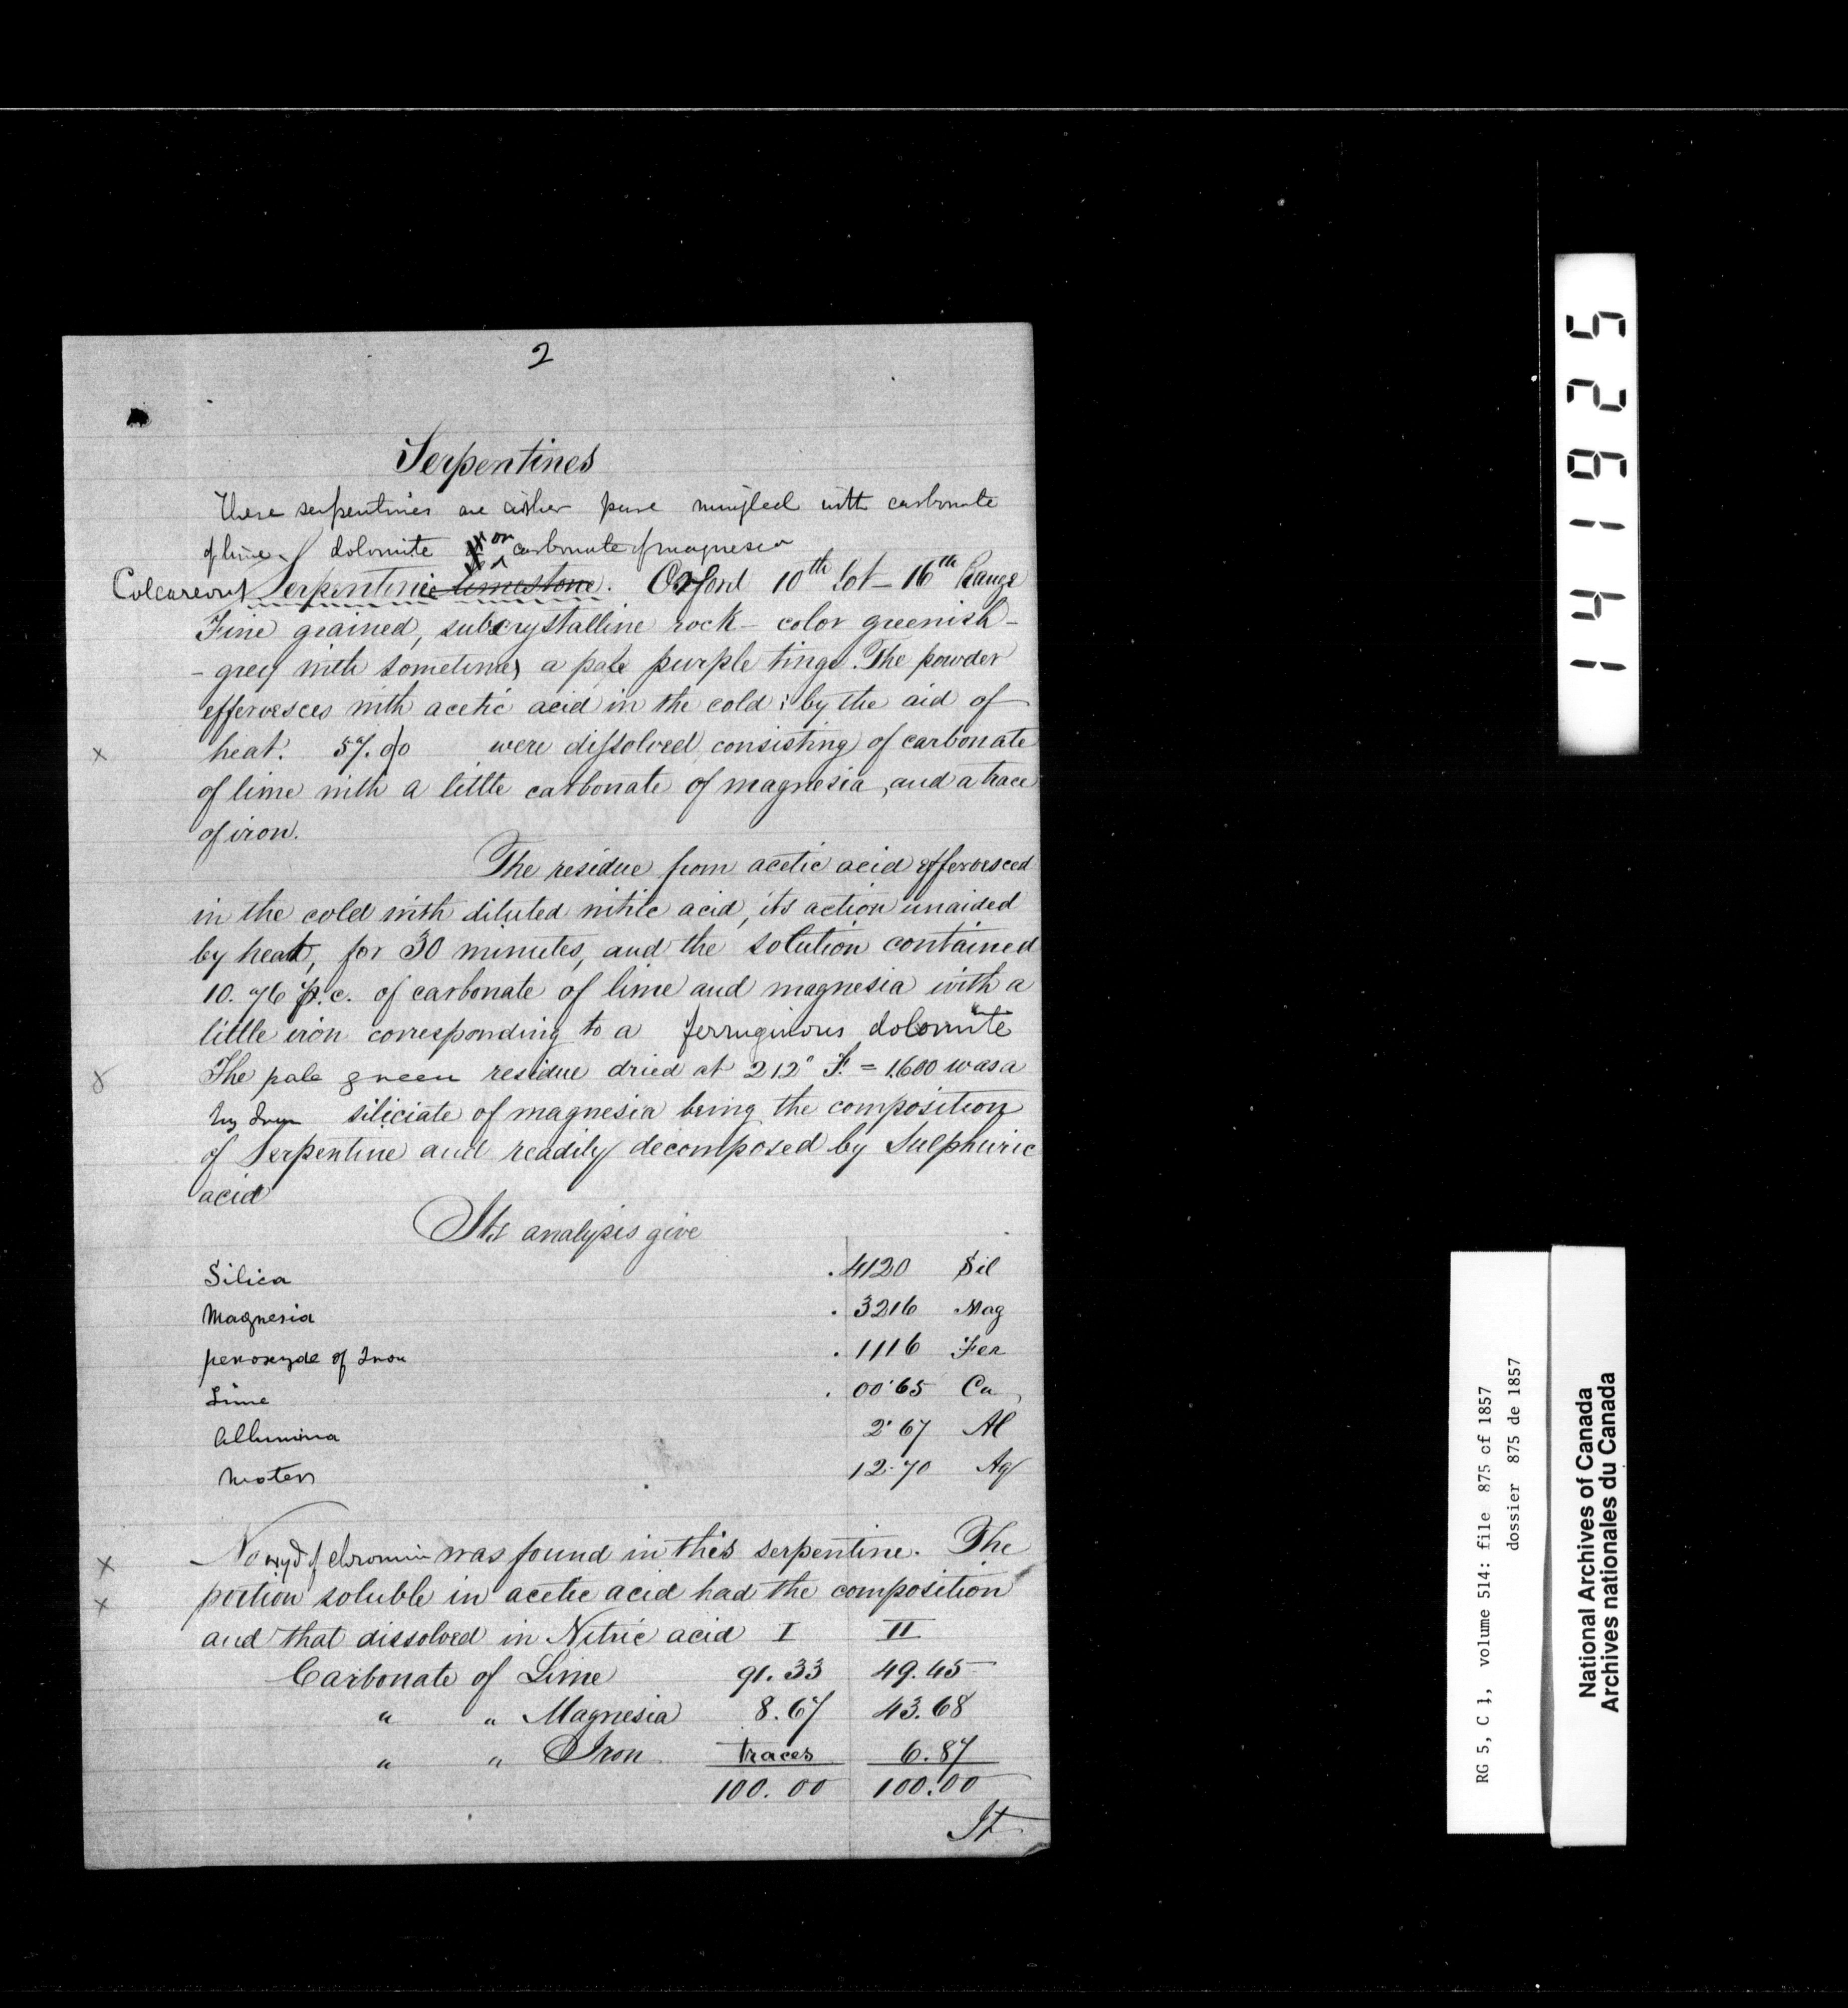 2
Serpentines
These serpentines are either pure mingled with carbonate
of lime, dolomite or carbonate of magnesia
Calcareous Serpentinic limestone. Oxford 10th lot - 16th Range
Fine grained, subcrystalline rock - color greenish -
- grey with sometimes a pale purple tinge. The powder
effervesces with acetic acid in the cold : by the aid of
x heat. 57.00 were dissolved consisting of carbonate
of lime with a little carbonate of magnesia, and a trace
of iron.
The residue from acetic acid effervesced
in the cold with diluted nitric acid, its action unaided
by heat, for 30 minutes, and the solution contained
10.76 p.c. of carbonate of lime and magnesia with a
little iron corresponding to a ferruginous dolomite
The pale green residue dried at 212° F. = 1.600 was a
hydrous siliciate of magnesia being the composition
of Serpentine and readily decomposed by Sulphuric
acid
Its analysis give
Silica .4120 Sil
Magnesia . 3216 Mag
peroxyde of Iron . 1116 Fer
Lime . 00.65 Ca
Allumina 2.67 Al
Water 12.70 Aq
x No oxyd of chromium was found in this serpentine. The
x portion soluble in acetic acid had the composition
and that dissolved in Nitric acid I II
Carbonate of Lime 91.33 49.45
" " Magnesia 8.67 43.68
" " Iron traces 6.87
100.00 100.00
It
141925
RG 5, C 1, volume 514: file 875 of 1857
dossier 875 de 1857
National Archives of Canada
Archives nationales du Canada